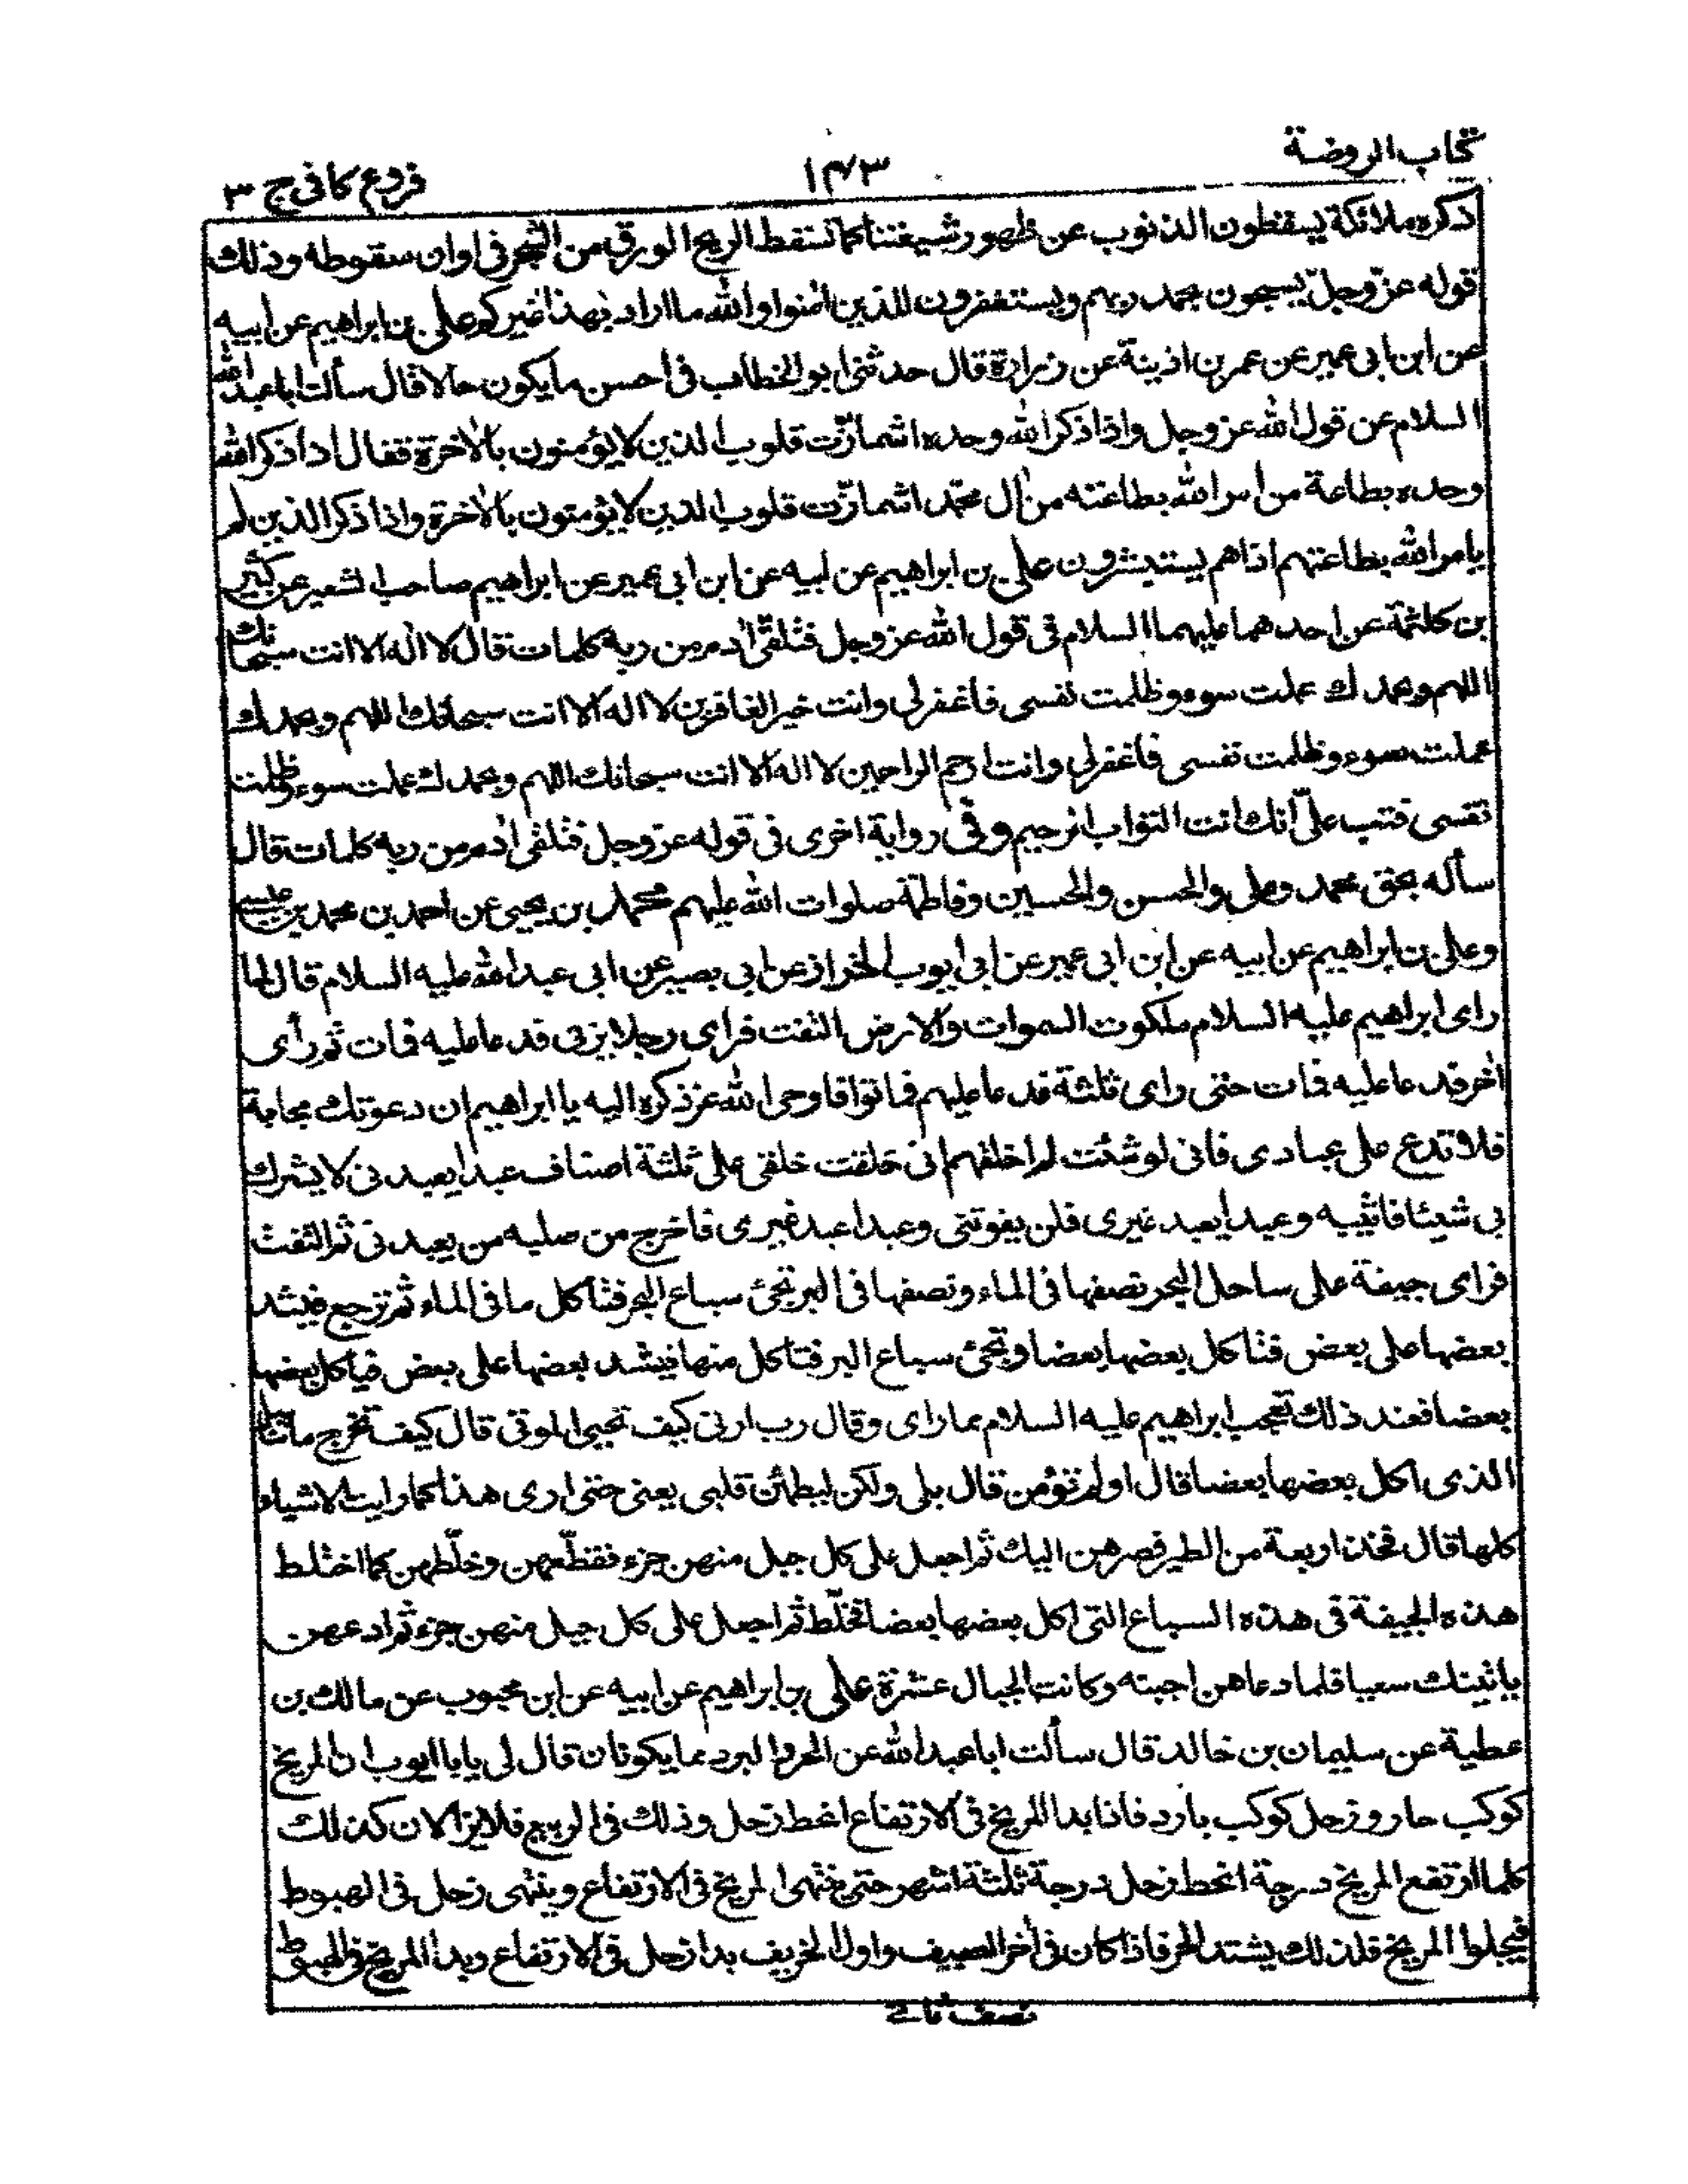 كتاب الروضة
١٤٣
فروع كافى ج ٣
ذكره ملائكة يسقطون الذنوب عن ظهور شيعتنا كما تسقط الريح الورق من الشجر فى اوان سقوطه وذلك
قوله عزّ وجلّ يسبحون بحمد ربهم ويستغفرون للذين اٰمنوا والله ما اراد بهذا غيركم على بن ابراهيم عن ابيه
عن ابن ابى عمير عن عمر بن اذينة عن زرارة قال حدثنى ابو الخطاب فى احسن ما يكون حالا قال سألت ابا عبد الله عليه
السلام عن قول الله عز وجل واذا ذكر الله وحده اشمازّت قلوب الذين لا يؤمنون بالاٰخرة فقال اذا ذكر الله
وحده بطاعة من امر الله بطاعته من اٰل محمّد اشمازّت قلوب الذين لا يؤمنون بالاٰخرة واذا ذكر الذين لم
يامر الله بطاعتهم اذا هم يستبشرون على بن ابراهيم عن ابيه عن ابن ابى عمير عن ابراهيم صاحب الشعير عن كثير
بن كلثمة عن احدهما عليهما السلام فى قول الله عز وجل فتلقّى اٰدم من ربه كلمات قال لا اله الا انت سبحانك
اللهم وبحمدك عملت سوء وظلمت نفسى فاغفر لى وانت خير الغافرين لا اله الا انت سبحانك اللهم وبحمدك
عملت سوء وظلمت نفسى فاغفر لى وانت ارحم الراحمين لا اله الا انت سبحانك اللهم وبحمدك عملت سوء وظلمت
نفسى فتب علىّ انك انت التواب الرحيم وفى رواية اخرى فى قوله عز وجل فتلقى اٰدم من ربه كلمات قال
سأله بحق محمد وعلى والحسن والحسين وفاطمة صلوات الله عليهم محمد بن يحيى عن احمد بن محمد بن عيسى
وعلى بن ابراهيم عن ابيه عن ابن ابى عمير عن ابى ايوب الخراز عن ابى بصير عن ابى عبد الله عليه السلام قال لما
راى ابراهيم عليه السلام ملكوت السموات والارض التفت فراى رجلا يزنى فدعا عليه فمات ثم رأى
اٰخر فدعا عليه فمات حتى راى ثلثة فدعا عليهم فماتوا فاوحى الله عز ذكره اليه يا ابراهيم ان دعوتك مجابة
فلا تدع على عبادى فانى لو شئت لم اخلقهم انى خلقت خلقى على ثلثة اصناف عبدا يعبدنى لا يشرك
بى شيئا فاثيبه وعبدا يعبد غيرى فلن يفوتنى وعبدا عبد غيرى فاخرج من صلبه من يعبدنى ثم التفت
فراى جيفة على ساحل البحر نصفها فى الماء ونصفها فى البر تجئ سباع البحر فتأكل ما فى الماء ثم ترجع فيشد
بعضها على بعض فتأكل بعضها بعضا وتجئ سباع البر فتاكل منها فيشد بعضها على بعض فياكل بعضها
بعضا فعند ذلك تعجب ابراهيم عليه السلام مما راى وقال رب ارنى كيف تحيى الموتى قال كيف تخرج ما تناسل
الذى اكل بعضها بعضا قال اولم تؤمن قال بلى ولكن ليطمئن قلبى يعنى حتى ارى هذا كما رايت الاشياء
كلها قال فخذ اربعة من الطير فصرهن اليك ثم اجعل على كل جبل منهن جزء فقطّعهن وخلّطهن كما اختلط
هذه الجيفة فى هذه السباع التى اكل بعضها بعضا فخلّط ثم اجعل على كل جبل منهن جزء ثم ادعهن
ياتينك سعيا فلما دعاهن اجبته وكانت الجبال عشرة على بن ابراهيم عن ابيه عن ابن محبوب عن مالك بن
عطية عن سليمان بن خالد قال سألت ابا عبد الله عن الحر والبرد مما يكونان قال لى يا با ايوب ان المريخ
كوكب حار وزحل كوكب بارد فاذا بدا المريخ فى الارتفاع انحط زحل وذلك فى الربيع فلا يزالان كذلك
كلما ارتفع المريخ درجة انحط زحل درجة ثلثة اشهر حتى ينتهى المريخ فى الارتفاع وينتهى زحل فى الهبوط
فيجلوا المريخ فلذلك يشتد الحر فاذا كان فى اٰخر الصيف واول الخريف بدا زحل فى الارتفاع وبدا المريخ فى الهبوط
نصف ثانى